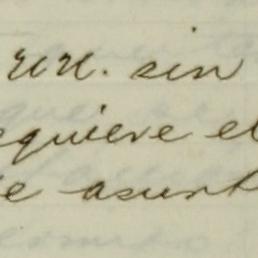 RR. sin
equiere el
e asunt